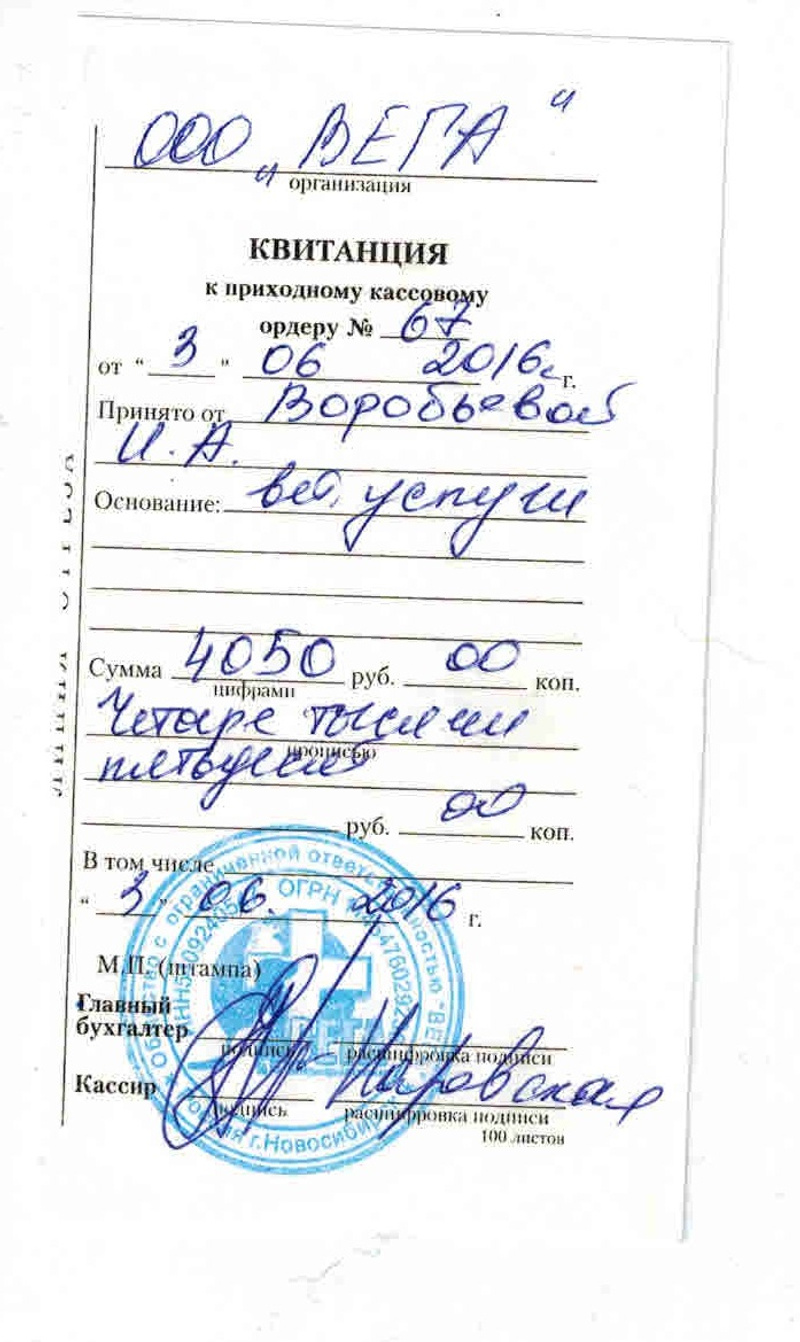 ООО „ВЕГА"
организация
КВИТАНЦИЯ
к приходному кассовому
ордеру № 67
от "3" 06 2016 г.
Принято от Воробьевой
И.А.
Основание: вет. услуги
Сумма 4050 руб. 00 коп.
цифрами
Четыре тысячи
прописью
пятьдесят
руб. 00 коп.
В том числе
"3" 06. 2016 г.
М.П. (штампа)
Главный
бухгалтер
подпись расшифровка подписи
Кассир
подпись расшифровка подписи
100 листов
ЛИНИЯ ОТРЕЗА
с ограниченной ответственностью
ОГРН
г.Новосибирск